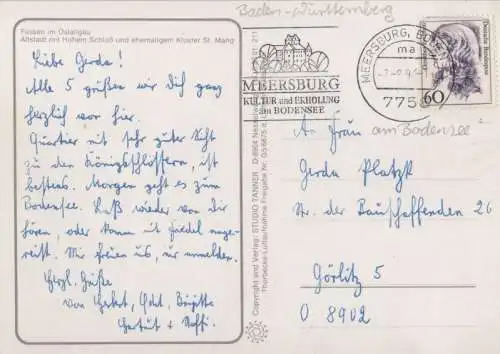 Füssen im Ostallgäu
Altstadt mit Hohem Schloß und ehemaligem Kloster St. Mang
Liebe Gerda!
Alle 5 grüßen wir Dich ganz
herzlich von hier.
Quartier mit sehr guter Sicht
zu den Königsschlössern, ist
bestens. Morgen geht es zum
Bodensee. Laß wieder von Dir
hören, oder komm mit
Wir freuen uns, wir
Herzl. Grüße
von Birgitta
Gertrud + Steffi.
Copyright und Verlag: STUDIO TANNER
Baden-Württemberg
MEERSBURG
KULTUR und ERHOLUNG
am BODENSEE
MEERSBURG, BODENSEE
ma
775
Deutsche Bundespost
60
An Frau
am Bodensee
Gerda Platzk
Str. der Bauschaffenden 26
Görlitz 5
O 8902